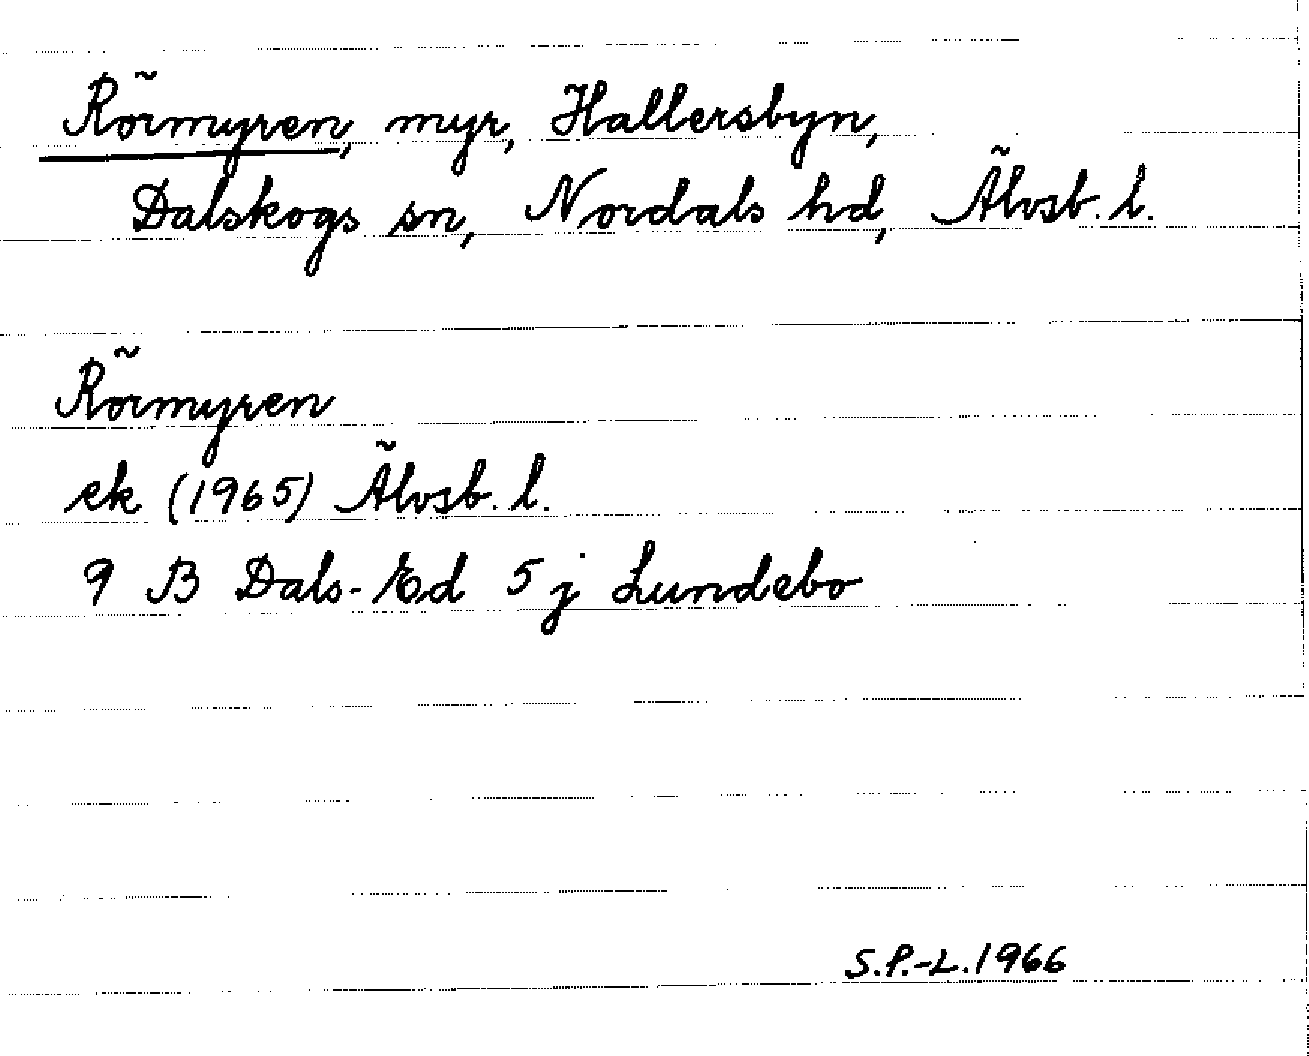 Rörmyren, myr, Hallersbyn,
Dalskogs sn, Nordals hd, Älvsb. l.
Rörmyren
ek (1965) Älvsb. l.
9 B Dals-Ed 5 j Lundebo
S.P.-L. 1966